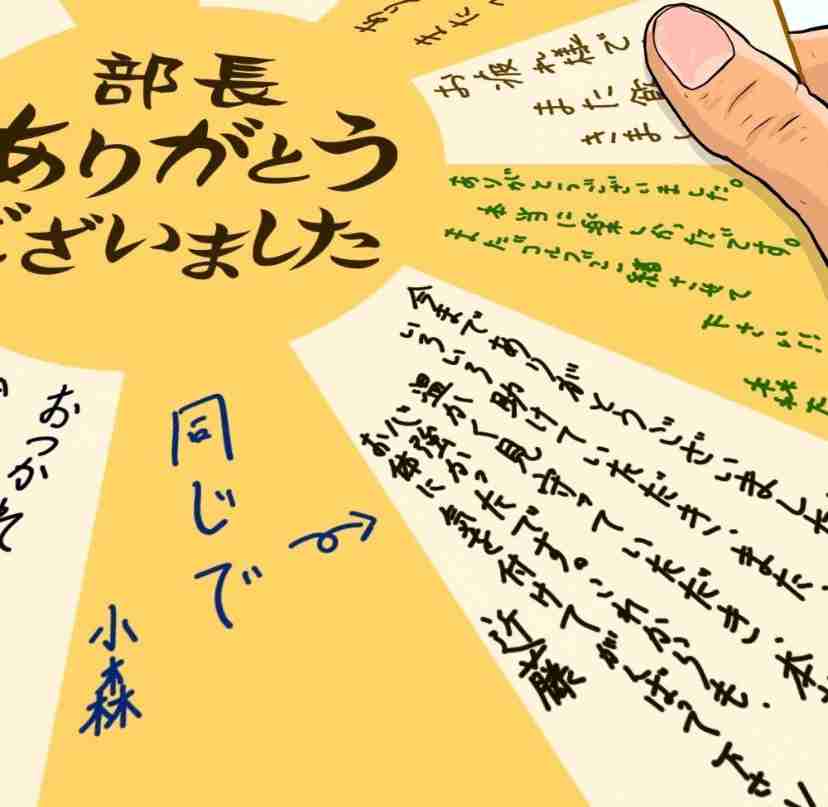 部長
ありがとう
ございました
お疲れ様で
また飲
きまし
ありがとうございました。
本当に楽しかったです。
またゴルフご一緒させて
下さい!!
今までありがとうございました
いろいろ助けていただき、また、
温かく見守っていただき、本
心強かったです。これからも、
お体に気を付けてがんばって下さい
近藤
同じで
小森
おつか